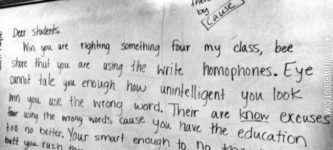 by
cause
Dear Students,
Win you are righting something four my class, bee
shore that you are using the write homophones. Eye
cannot tale you enough how unintelligent you look
win you use the wrong word. Their are know excuses
four using the wrong words cause you have the education
too no better. Your smart enough to no the
butt you rush